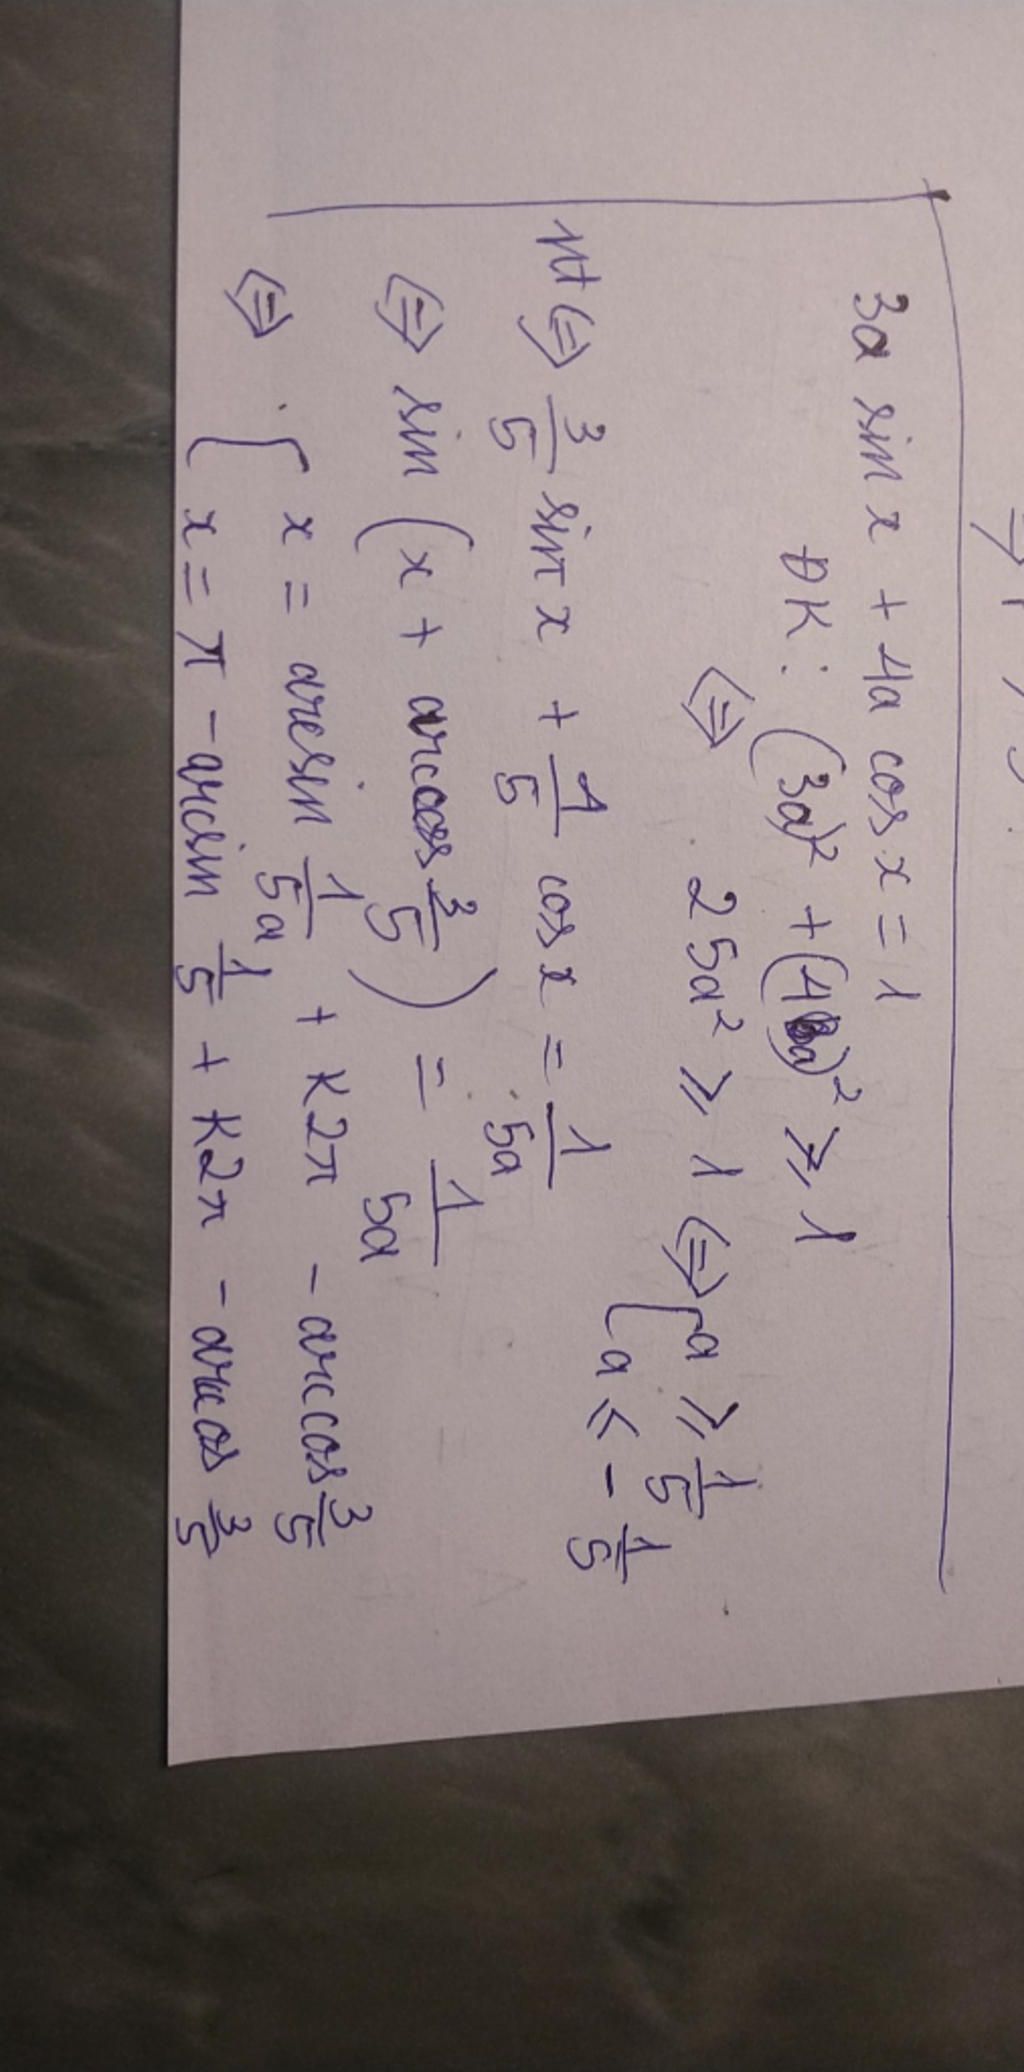 3a sin x + 4a cos x = 1
ĐK: (3a)² + (4a)² ⩾ 1
⇔ 25a² ⩾ 1 ⇔ [ a ⩾ 1/5
a ⩽ - 1/5
pt ⇔ 3/5 sin x + 4/5 cos x = 1/5a
⇔ sin (x + arccos 3/5) = 1/5a
⇔ [ x = arcsin 1/5a + k2π - arccos 3/5
x = π - arcsin 1/5 + k2π - arccos 3/5